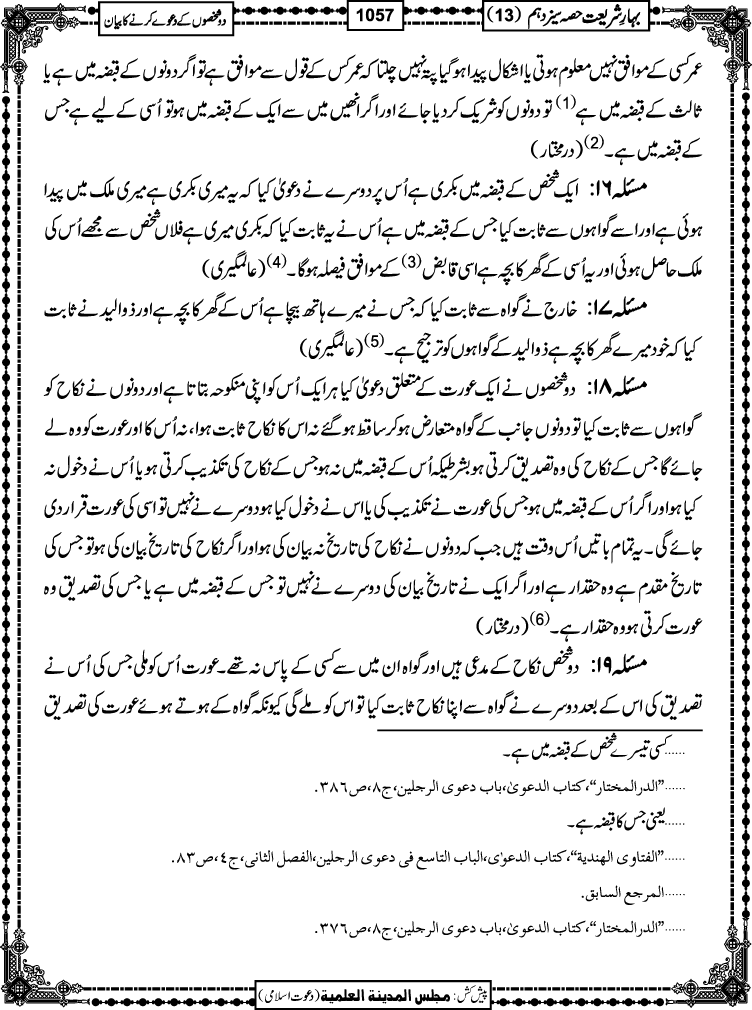 بہارِ شریعت حصہ سیزدہم (13)
1057
دو شخصوں کے دعوے کرنے کا بیان
عمر کسی کے موافق نہیں معلوم ہوتی یا اشکال پیدا ہوگیا پتہ نہیں چلتا کہ عمر کس کے قول سے موافق ہے تو اگر دونوں کے قبضہ میں ہے یا
ثالث کے قبضہ میں ہے (1) تو دونوں کو شریک کردیا جائے اور اگر انھیں میں سے ایک کے قبضہ میں ہو تو اُسی کے لیے ہے جس
کے قبضہ میں ہے۔(2) (درمختار)
مسئلہ ۱۶: ایک شخص کے قبضہ میں بکری ہے اُس پر دوسرے نے دعویٰ کیا کہ یہ میری بکری ہے میری ملک میں پیدا
ہوئی ہے اور اسے گواہوں سے ثابت کیا جس کے قبضہ میں ہے اُس نے یہ ثابت کیا کہ بکری میری ہے فلاں شخص سے مجھے اُس کی
ملک حاصل ہوئی اور یہ اُسی کے گھر کا بچہ ہے اسی قابض (3) کے موافق فیصلہ ہوگا۔(4) (عالمگیری)
مسئلہ ۱۷: خارج نے گواہ سے ثابت کیا کہ جس نے میرے ہاتھ بیچا ہے اُس کے گھر کا بچہ ہے اور ذوالید نے ثابت
کیا کہ خود میرے گھر کا بچہ ہے ذوالید کے گواہوں کو ترجیح ہے۔(5) (عالمگیری)
مسئلہ ۱۸: دو شخصوں نے ایک عورت کے متعلق دعویٰ کیا ہر ایک اُس کو اپنی منکوحہ بتاتا ہے اور دونوں نے نکاح کو
گواہوں سے ثابت کیا تو دونوں جانب کے گواہ متعارض ہوکر ساقط ہوگئے نہ اس کا نکاح ثابت ہوا، نہ اُس کا اور عورت کو وہ لے
جائے گا جس کے نکاح کی وہ تصدیق کرتی ہو بشرطیکہ اُس کے قبضہ میں نہ ہو جس کے نکاح کی تکذیب کرتی ہو یا اُس نے دخول نہ
کیا ہو اور اگر اُس کے قبضہ میں ہو جس کی عورت نے تکذیب کی یا اس نے دخول کیا ہو دوسرے نے نہیں تو اسی کی عورت قرار دی
جائے گی۔ یہ تمام باتیں اُس وقت ہیں جب کہ دونوں نے نکاح کی تاریخ نہ بیان کی ہو اور اگر نکاح کی تاریخ بیان کی ہو تو جس کی
تاریخ مقدم ہے وہ حقدار ہے اور اگر ایک نے تاریخ بیان کی دوسرے نے نہیں تو جس کے قبضہ میں ہے یا جس کی تصدیق وہ
عورت کرتی ہو وہ حقدار ہے۔(6) (درمختار)
مسئلہ ۱۹: دو شخص نکاح کے مدعی ہیں اور گواہ ان میں سے کسی کے پاس نہ تھے۔ عورت اُس کو ملی جس کی اُس نے
تصدیق کی اس کے بعد دوسرے نے گواہ سے اپنا نکاح ثابت کیا تو اس کو ملے گی کیونکہ گواہ کے ہوتے ہوئے عورت کی تصدیق
......کسی تیسرے شخص کے قبضہ میں ہے۔
......”الدرالمختار“، کتاب الدعویٰ، باب دعوی الرجلین، ج۸، ص۳۸۶.
......یعنی جس کا قبضہ ہے۔
......”الفتاوی الھندیة“، کتاب الدعوٰی، الباب التاسع فی دعوی الرجلین، الفصل الثانی، ج٤، ص۸۳.
......المرجع السابق.
......”الدرالمختار“، کتاب الدعویٰ، باب دعوی الرجلین، ج۸، ص۳۷۶.
پیش کش: مجلس المدینة العلمیة (دعوت اسلامی)